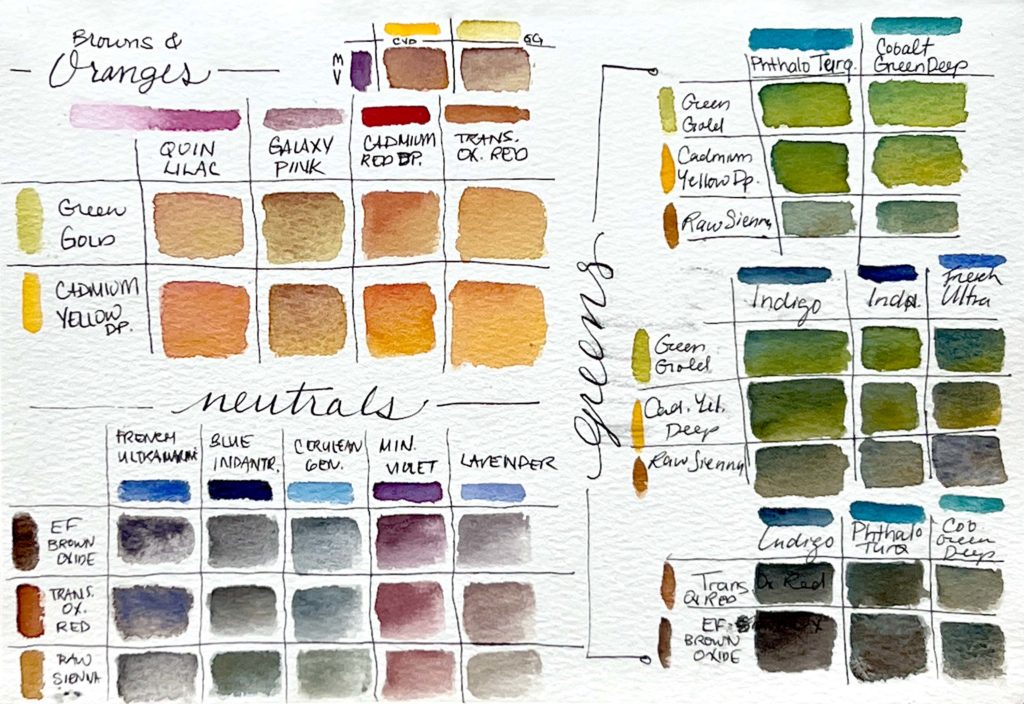 Browns &
Oranges
CYD
GG
M
V
QUIN
LILAC
GALAXY
PIINK
CADMIUM
RED DP.
TRANS.
OX. RED
GREEN
GOLD
CADMIUM
YELLOW
DP.
neutrals
FRENCH
ULTRAMARINE
BLUE
INDANTR.
CERULEAN
GEN.
MIN.
VIOLET
LAVENDER
EF
BROWN
OXIDE
TRANS.
OX.
RED
RAW
SIENNA
greens
Phthalo Turq.
Cobalt
Green Deep
Green
Gold
Cadmium
Yellow Dp.
Raw Sienna
Indigo
Ind.
French
Ultra
Green
Gold
Cad. Yel.
Deep
Raw Sienna
Indigo
Phthalo
Turq
Cob
Green
Deep
Trans Ox Red
Ox Red
EF
BROWN
OXIDE